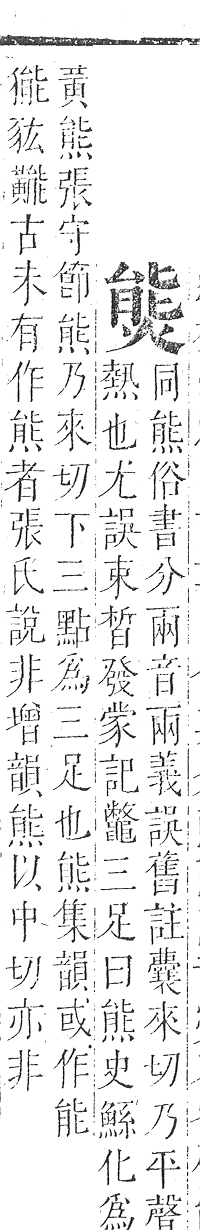 熋同熊俗書分兩音兩義誤舊註囊來切乃平聲
熱也尤誤束晳發蒙記鼈三足曰熊史鯀化爲
黃熊張守節熊乃來切下三點爲三足也熊集韻或作能
古未有作熊者張氏說非增韻熊以中切亦非